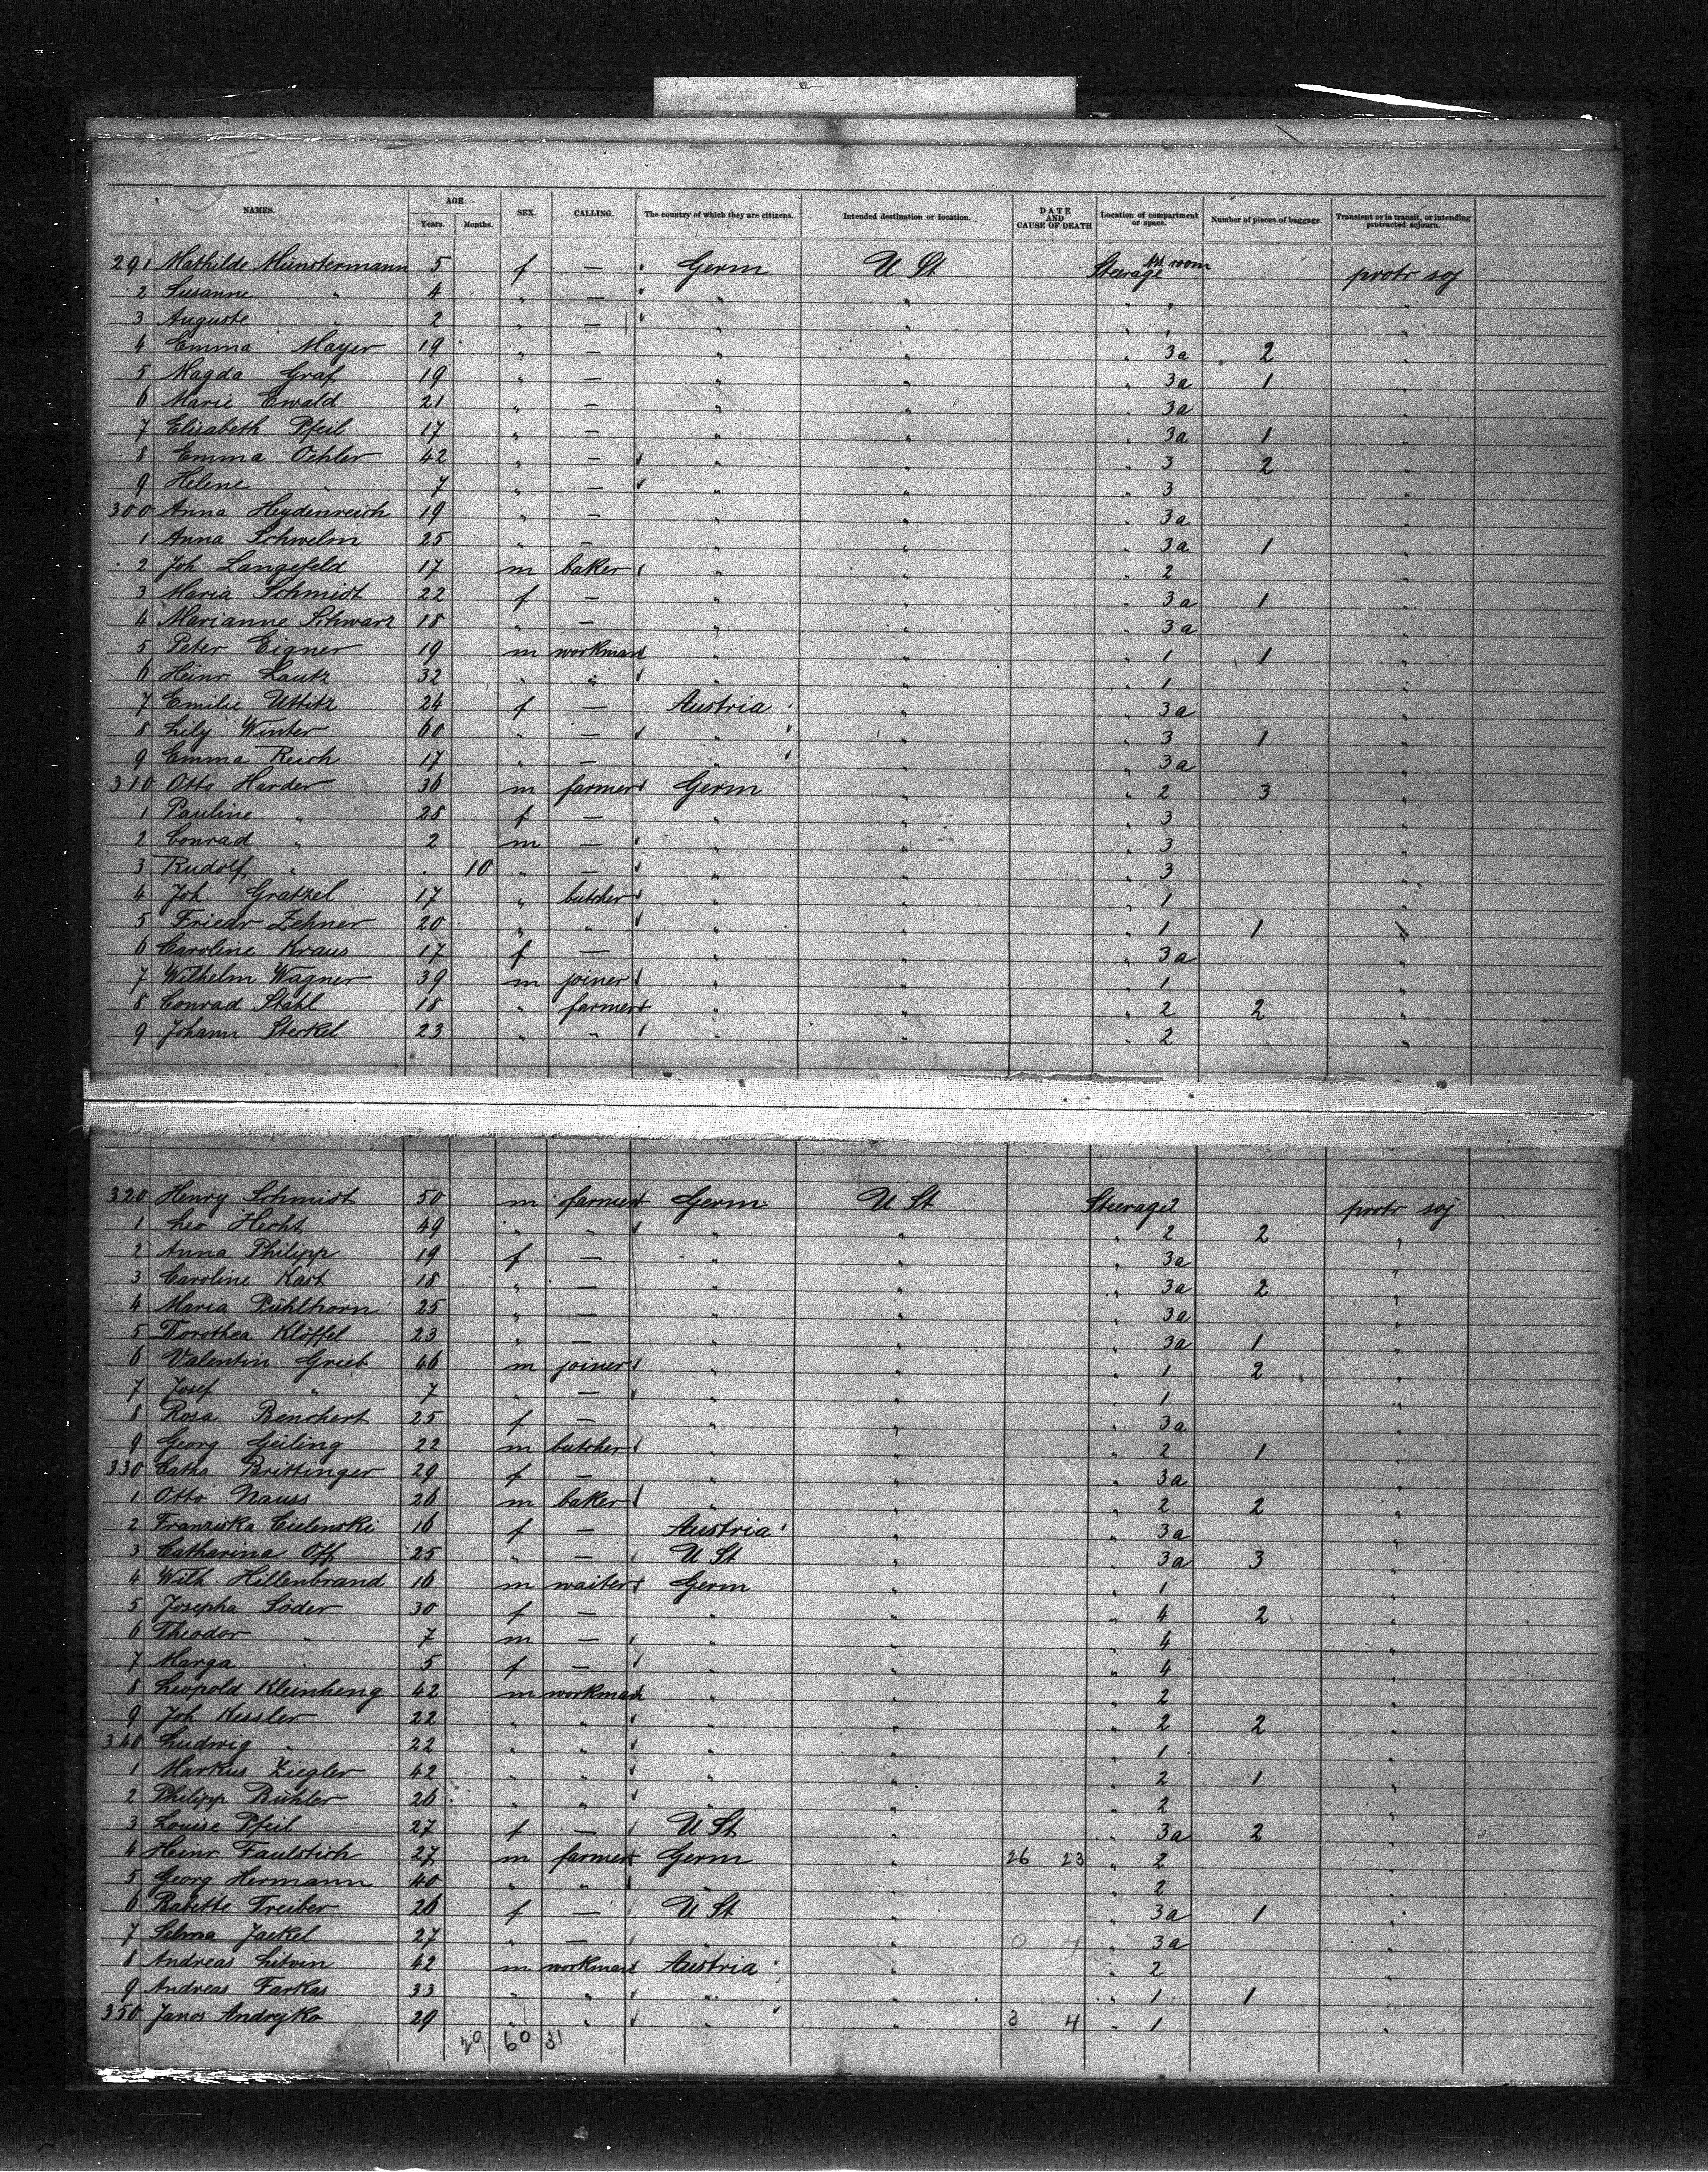 NAMES. AGE. SEX. CALLING. The country of which they are citizens. Intended destination or location. DATE AND CAUSE OF DEATH Location of compartment or space. Number of pieces of baggage. Transient or in transit, or intending protracted sojourn.
Years. Months.
291 Mathilde Münstermann 5 f — Germ U St Steerage room protr soj
2 Susanne " 4 " — " " " " "
3 Auguste " 2 " — " " " " "
4 Emma Mayer 19 " — " " " 3a 2 "
5 Magda Graf 19 " — " " " 3a 1 "
6 Marie Ewald 21 " — " " " 3a "
7 Elisabeth Pfeil 17 " — " " " 3a 1 "
8 Emma Oehler 42 " — " " " 3 2 "
9 Helene " 7 " — " " " 3 "
300 Anna Heydenreich 19 " — " " " 3a "
1 Anna Schwelm 25 " — " " " 3a 1 "
2 Joh Langefeld 17 m baker " " " 2 "
3 Maria Schmidt 22 f — " " " 3a 1 "
4 Marianne Schwarz 18 " — " " " 3a "
5 Peter Eigner 19 m workman " " " 1 1 "
6 Heinr. Lautz 32 " " " " " 1 "
7 Emilie Uttitz 24 f — Austria " " 3a "
8 Lily Winter 60 " — " " " 3 1 "
9 Emma Reich 17 " — " " " 3a "
310 Otto Harder 36 m farmer Germ " " 2 3 "
1 Pauline " 28 f — " " " 3 "
2 Conrad " 2 m — " " " 3 "
3 Rudolf " 10 " — " " " 3 "
4 Joh Gratzel 17 " butcher " " " 1 "
5 Friedr Zehner 20 " " " " " 1 1 "
6 Caroline Kraus 17 f — " " " 3a "
7 Wilhelm Wagner 39 m joiner " " " 1 "
8 Conrad Stahl 18 " farmer " " " 2 2 "
9 Johann Sterkel 23 " " " " " 2 "
320 Henry Schmidt 50 m farmer Germ U St Steerage 2 protr soj
1 Leo Hecht 49 " " " " " 2 2 "
2 Anna Philipp 19 f — " " " 3a "
3 Caroline Kast 18 " — " " " 3a 2 "
4 Maria Pühlhorn 25 " — " " " 3a "
5 Dorothea Klöffel 23 " — " " " 3a 1 "
6 Valentin Grieb 46 m joiner " " " 1 2 "
7 Josef " 7 " — " " " 1 "
8 Rosa Benchert 25 f — " " " 3a "
9 Georg Geiling 22 m butcher " " " 2 1 "
330 Catha Brittinger 29 f — " " " 3a "
1 Otto Nauss 26 m baker " " " 2 2 "
2 Franziska Cielenski 16 f — Austria " " 3a "
3 Catharina Off 25 " — U St " " 3a 3 "
4 Wilh. Hillenbrand 16 m waiter Germ " " 1 "
5 Josepha Söder 30 f — " " " 4 2 "
6 Theodor " 7 m — " " " 4 "
7 Marga " 5 f — " " " 4 "
8 Leopold Kleinheng 42 m workman " " " 2 "
9 Joh Kessler 22 " " " " " 2 2 "
340 Ludwig " 22 " " " " " 1 "
1 Markus Ziegler 42 " " " " " 2 1 "
2 Philipp Bühler 26 " " " " " 2 "
3 Louise Pfeil 27 f — U St " " 3a 2 "
4 Heinr. Faulstich 27 m farmer Germ " 26 23 " 2 "
5 Georg Hermann 40 " " " " " 2 "
6 Babette Treiber 26 f — U St " " 3a 1 "
7 Selma Jaekel 27 " — " " 0 4 " 3a "
8 Andreas Litvin 42 m workman Austria " " 2 "
9 Andreas Farkas 33 " " " " " 1 1 "
350 Janos Andryko 29 " " " " 3 4 " 1 "
29 60 31